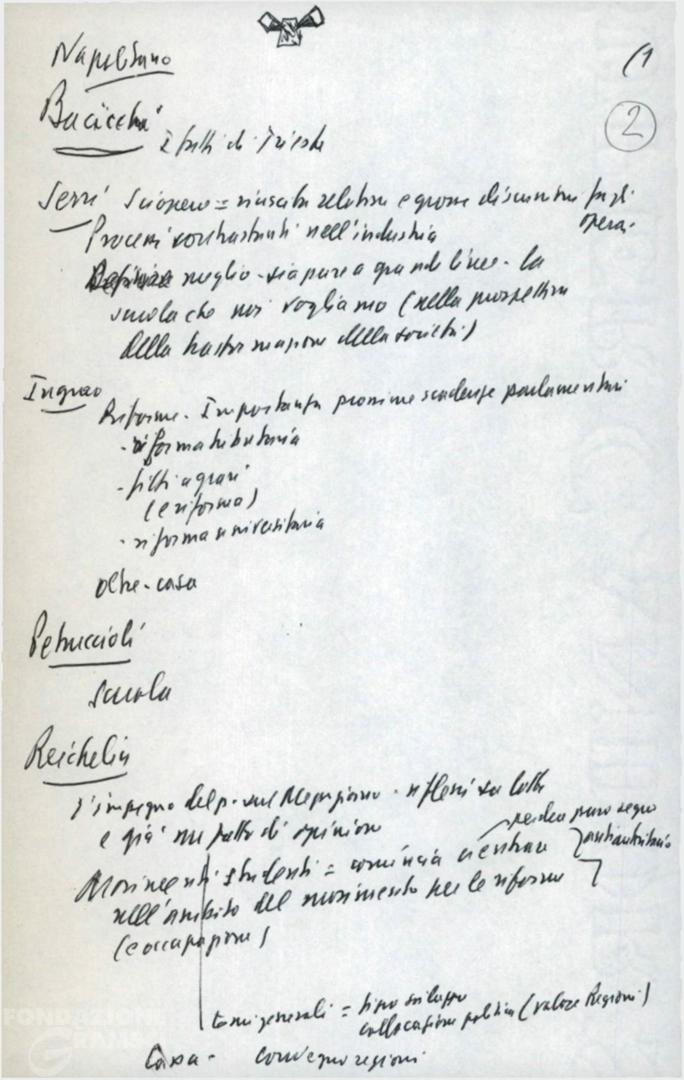 Napolitano
(1
2
Bacicchi
I fatti di Trieste
Serri Sciopero = riuscita relativa e grosse discussioni fra gli
operai
Processi contrastanti nell'industria
Definire meglio - sia pure a grandi linee - la
scuola che noi vogliamo (nella prospettiva
della trasformazione della società)
Ingrao
Riforme. Importanza prossime scadenze parlamentari
- riforma tributaria
- fitti agrari
(e riforma)
- riforma universitaria
oltre - casa
Petruccioli
Scuola
Reichlin
L'impegno del p. sul Mezzogiorno - riflessi su lotte
e già un fatto di opinione
perdere puro segno
antiautoritario
Movimenti studenti = comincia a entrare
nell'ambito del movimento per le riforme
(e occupazione)
temi generali = tipo sviluppo
collocazione politica (valore Regioni)
Casa - convegno regioni
FONDAZIONE
GRAMSCI